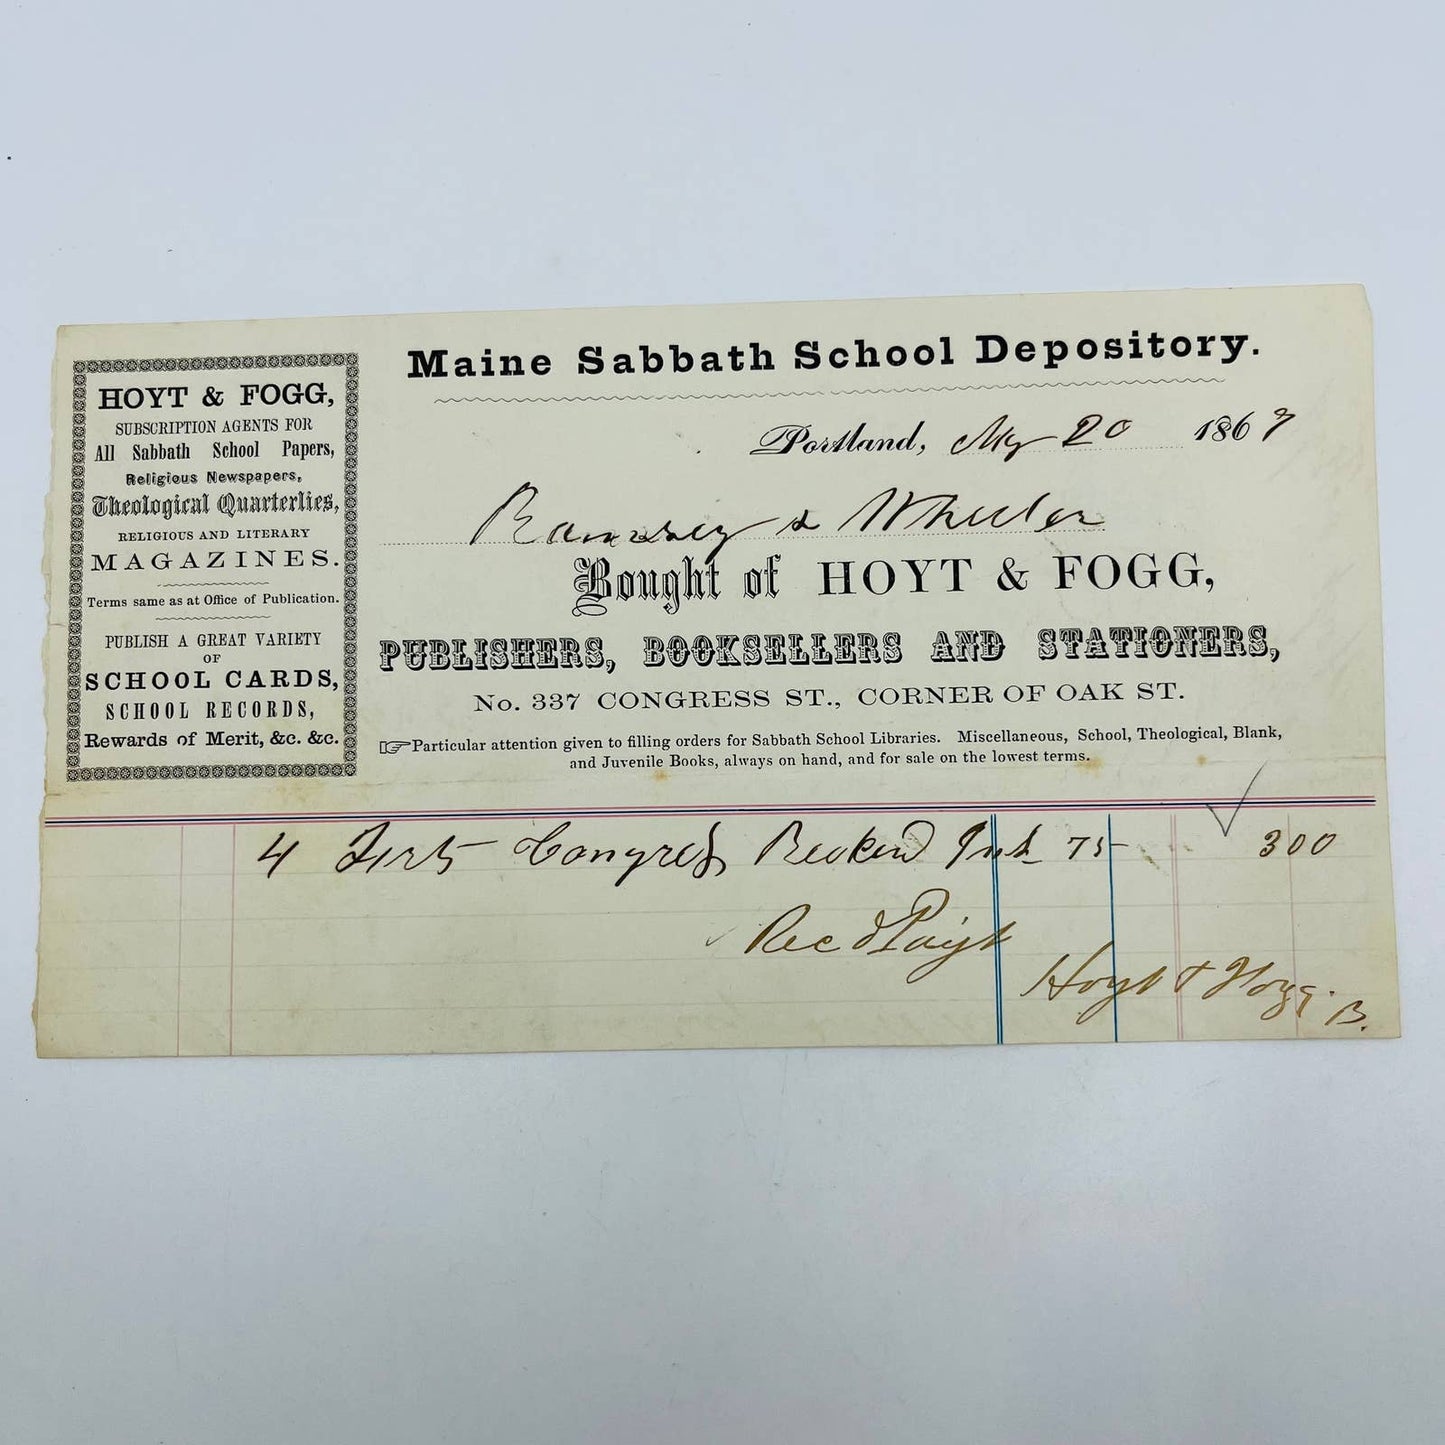 Maine Sabbath School Depository.
HOYT & FOGG,
SUBSCRIPTION AGENTS FOR
All Sabbath School Papers,
Religious Newspapers,
Theological Quarterlies,
RELIGIOUS AND LITERARY
MAGAZINES.
Terms same as at Office of Publication.
PUBLISH A GREAT VARIETY
OF
SCHOOL CARDS,
SCHOOL RECORDS,
Rewards of Merit, &c. &c.
Portland, My 20 1867
Ramsey & Wheeler
Bought of HOYT & FOGG,
PUBLISHERS, BOOKSELLERS AND STATIONERS,
No. 337 CONGRESS ST., CORNER OF OAK ST.
☞Particular attention given to filling orders for Sabbath School Libraries. Miscellaneous, School, Theological, Blank,
and Juvenile Books, always on hand, and for sale on the lowest terms.
4 Congress Ink 75 300
Recd Payt
Hoyt & Fogg. B.